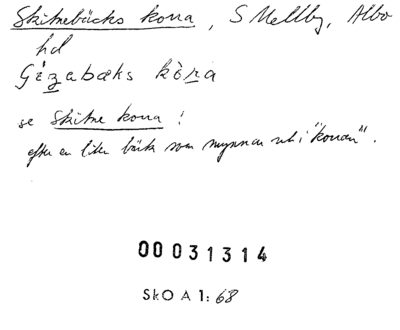 Skitnebäcks kona, S Mellby, Albo
hd
Gézabæks kòna
se Skitne kona!
efter en liten bäck som mynnar ut i "konan".
00031314
SkO A 1: 68